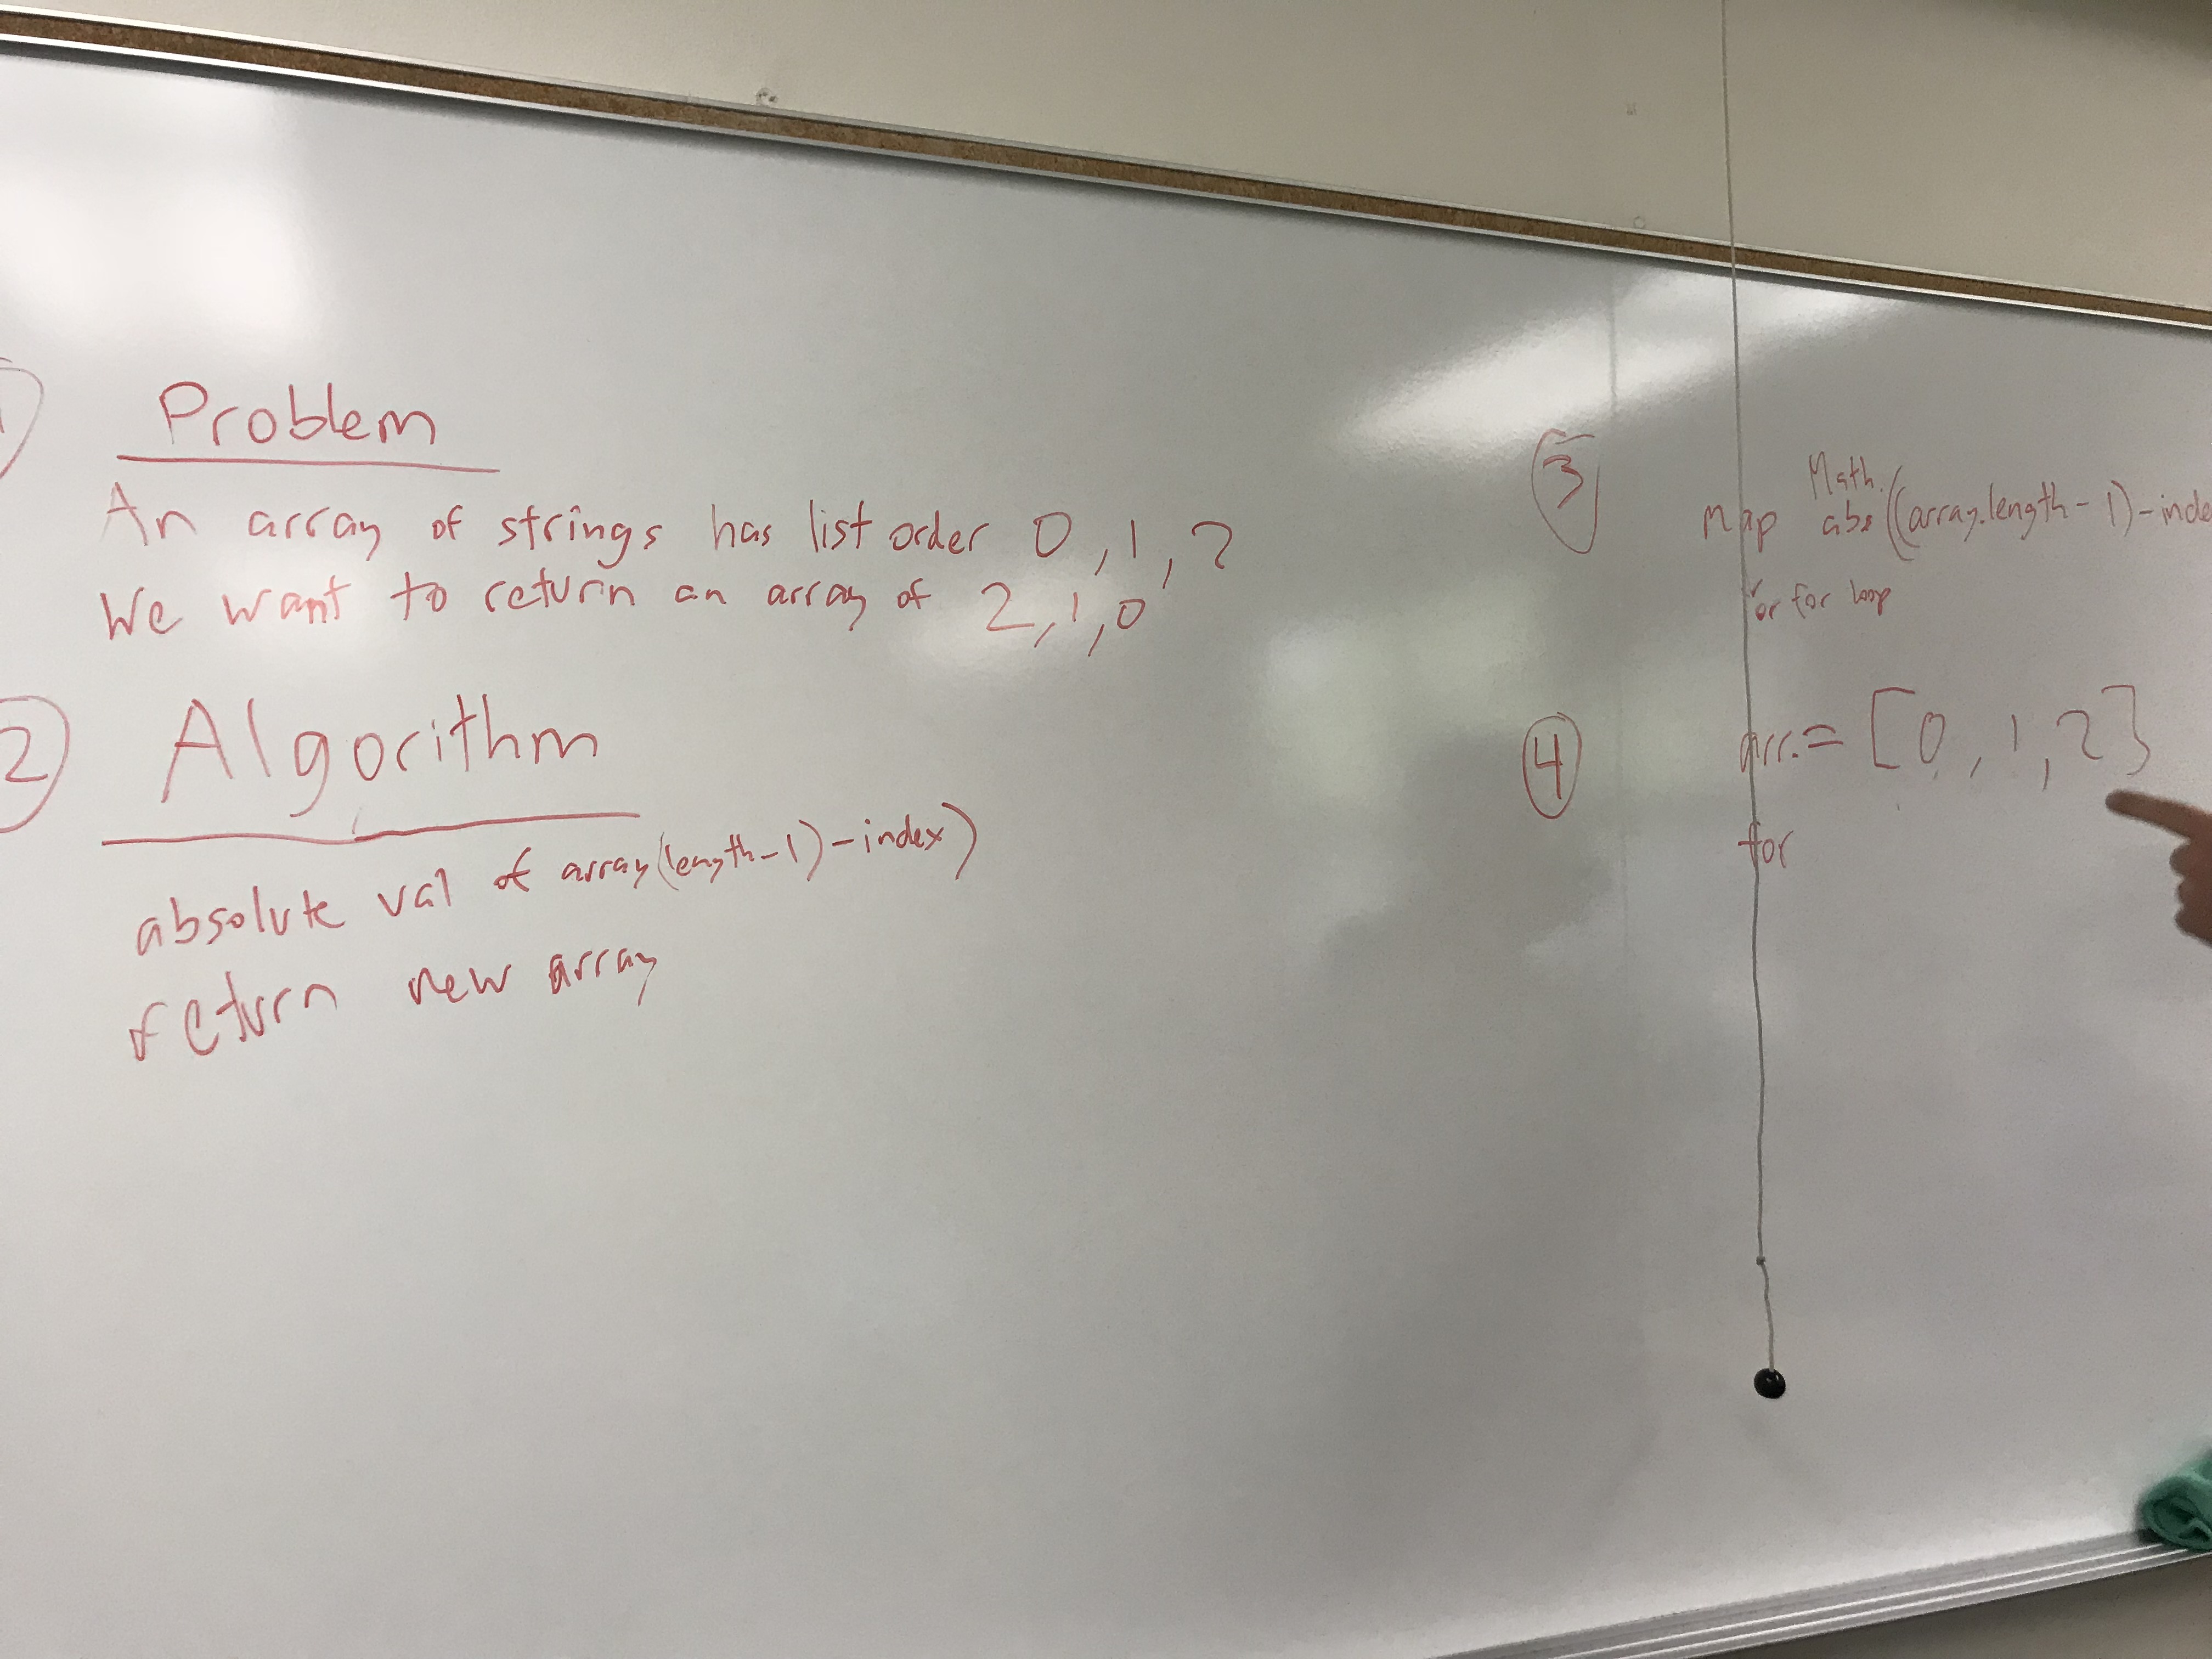 1
Problem
An array of strings has list order 0, 1, 2
We want to return an array of 2, 1, 0
2
Algorithm
absolute val of array(length-1)-index)
return new array
3
Math.
Map abs((array.length-1)-inde
or for loop
4
arr.= [0, 1, 2]
for